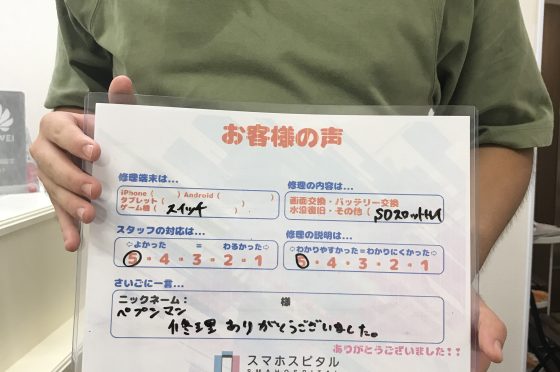 お客様の声
修理端末は...
修理の内容は...
iPhone（　　　）Android（　　　）
タブレット（　　　）
ゲーム機（ スイッチ ）
画面交換・バッテリー交換
水没復旧・その他（ SDスロット
スタッフの対応は...
修理の説明は...
⇦よかった　=　わるかった⇨
5・4・3・2・1
⇦わかりやすかった=わかりにくかった⇨
5・4・3・2・1
さいごに一言...
ニックネーム：　　　様
ペプンマン
修理ありがとうございました。
ありがとうございました!!
スマホスピタル
SMAHOSPITAL